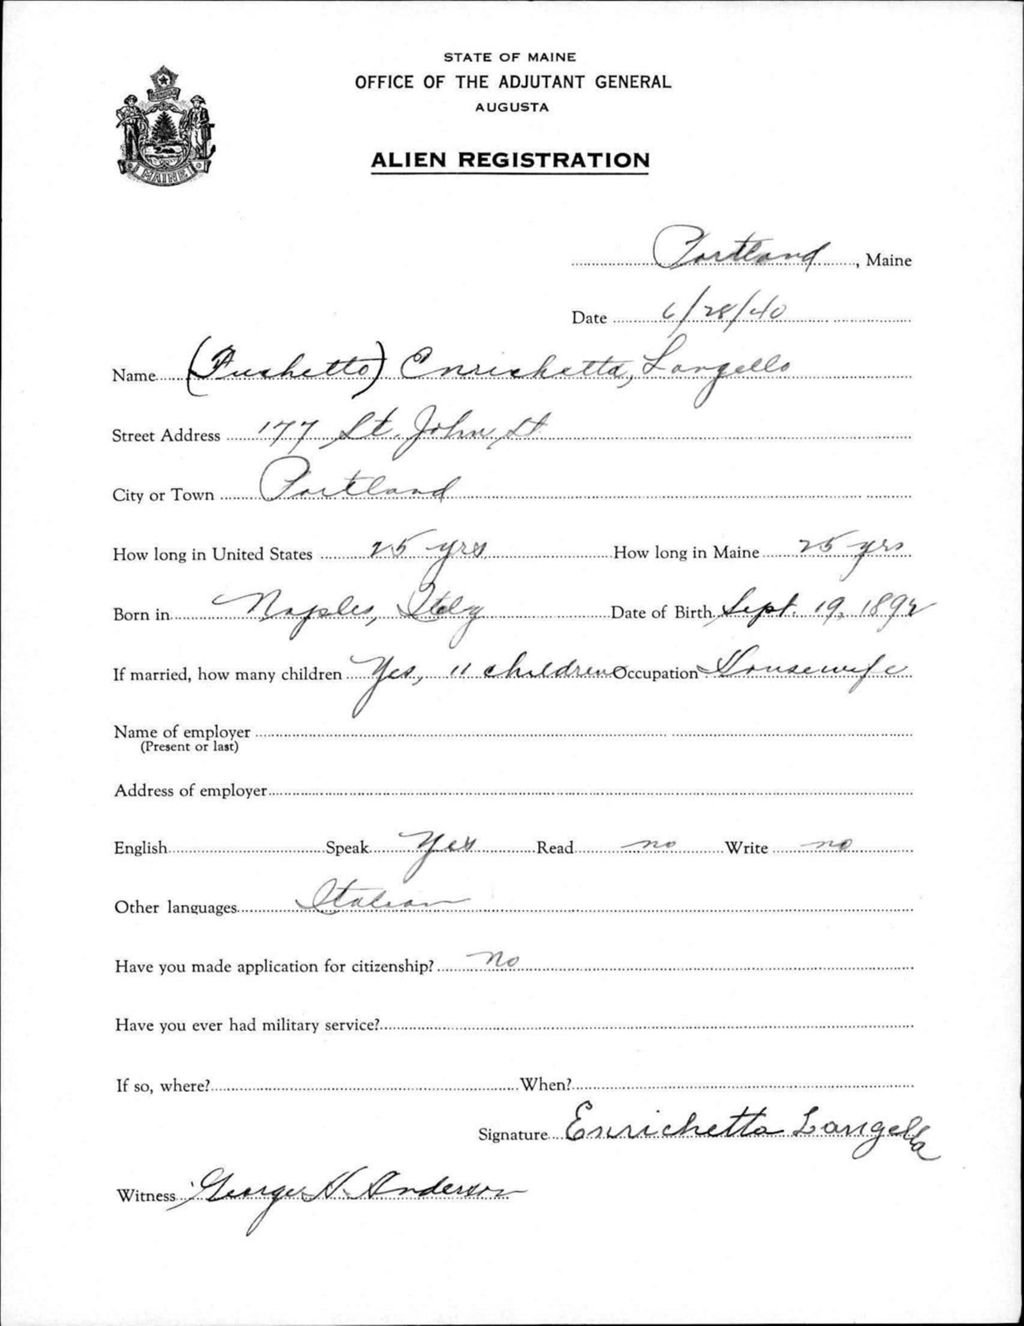 STATE OF MAINE
OFFICE OF THE ADJUTANT GENERAL
AUGUSTA
ALIEN REGISTRATION
MAINE
Portland, Maine
Date 6/28/40
Name (Fuchetto) Enrichetta, Langello
Street Address 177 St. John St
City or Town Portland
How long in United States 25 yrs How long in Maine 25 yrs
Born in Naples, Italy Date of Birth Sept. 19, 1892
If married, how many children Yes, 11 children Occupation Housewife
Name of employer
(Present or last)
Address of employer
English Speak Yes Read no Write no
Other languages Italian
Have you made application for citizenship? No
Have you ever had military service?
If so, where? When?
Signature Enrichetta Langella
Witness George H. Anderson